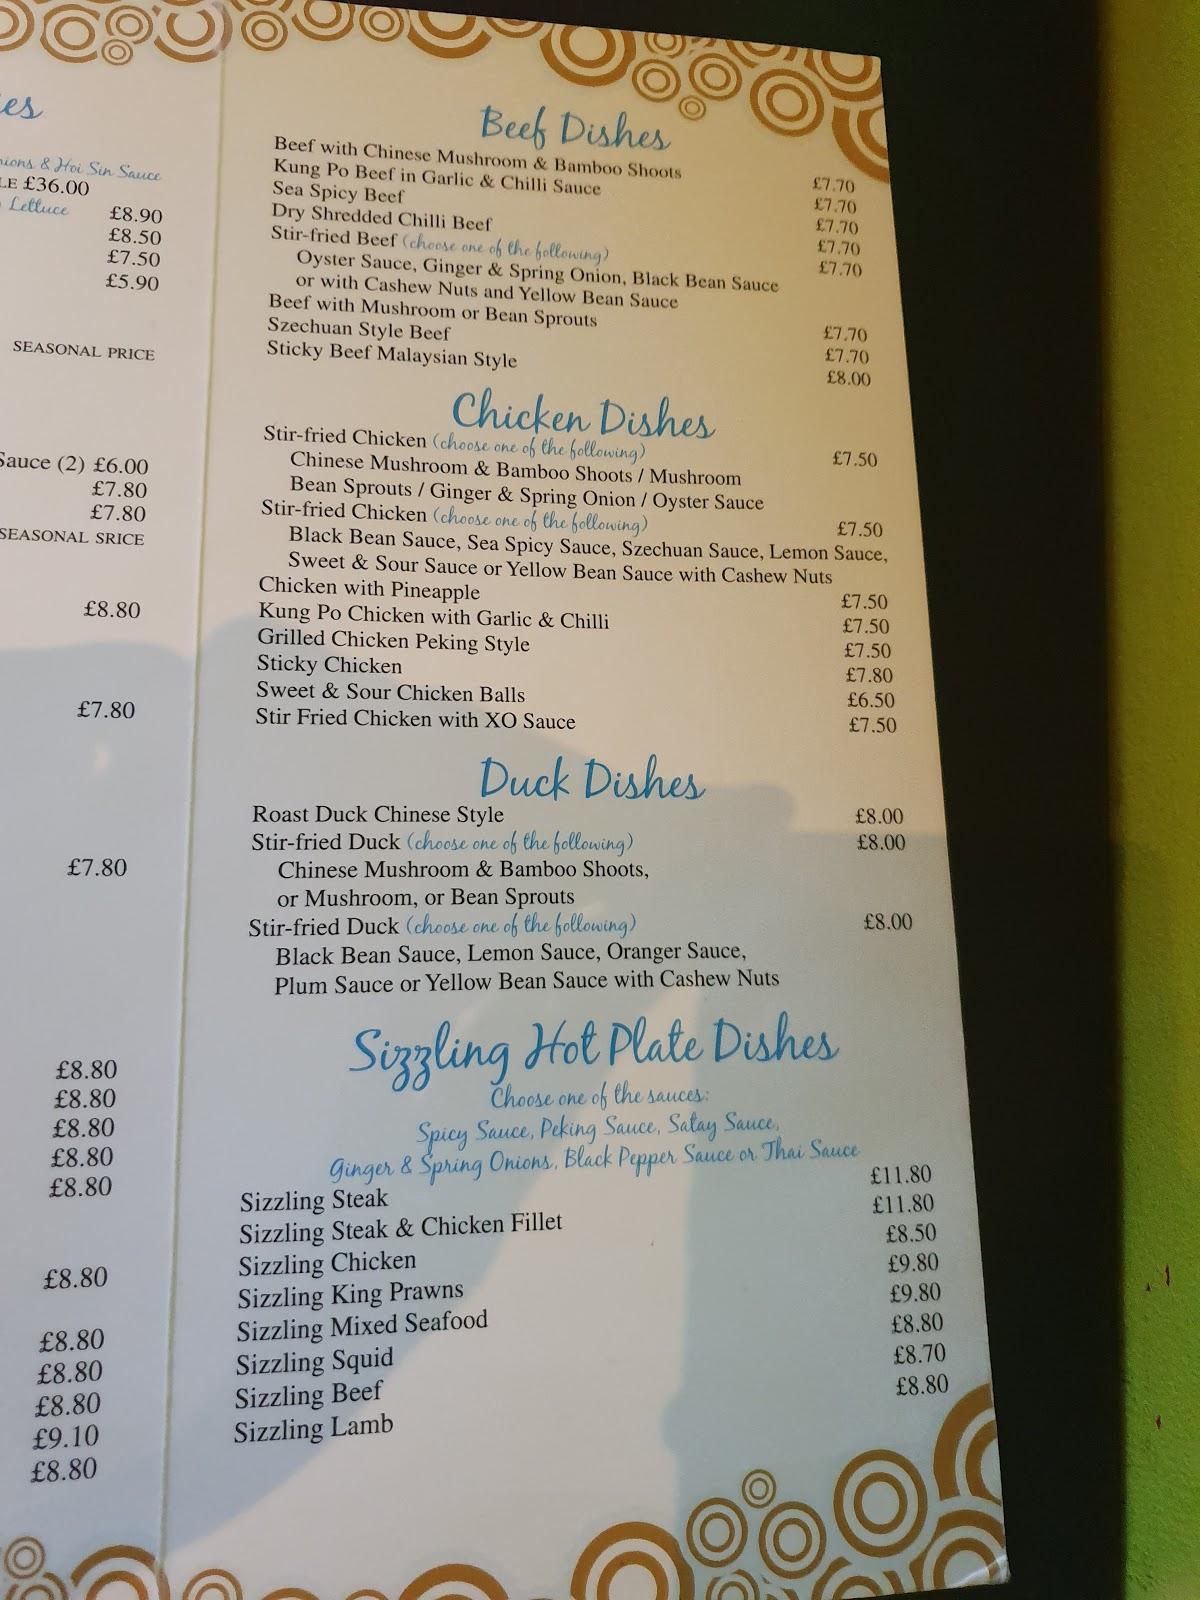 es
nions & Hoi Sin Sauce
LE £36.00
Lettuce £8.90
£8.50
£7.50
£5.90
SEASONAL PRICE
Sauce (2) £6.00
£7.80
£7.80
SEASONAL SRICE
£8.80
£7.80
£7.80
£8.80
£8.80
£8.80
£8.80
£8.80
£8.80
£8.80
£8.80
£8.80
£9.10
£8.80
Beef Dishes
Beef with Chinese Mushroom & Bamboo Shoots £7.70
Kung Po Beef in Garlic & Chilli Sauce £7.70
Sea Spicy Beef £7.70
Dry Shredded Chilli Beef £7.70
Stir-fried Beef (choose one of the following) £7.70
Oyster Sauce, Ginger & Spring Onion, Black Bean Sauce
or with Cashew Nuts and Yellow Bean Sauce
Beef with Mushroom or Bean Sprouts £7.70
Szechuan Style Beef £7.70
Sticky Beef Malaysian Style £8.00
Chicken Dishes
Stir-fried Chicken (choose one of the following) £7.50
Chinese Mushroom & Bamboo Shoots / Mushroom
Bean Sprouts / Ginger & Spring Onion / Oyster Sauce
Stir-fried Chicken (choose one of the following) £7.50
Black Bean Sauce, Sea Spicy Sauce, Szechuan Sauce, Lemon Sauce,
Sweet & Sour Sauce or Yellow Bean Sauce with Cashew Nuts
Chicken with Pineapple £7.50
Kung Po Chicken with Garlic & Chilli £7.50
Grilled Chicken Peking Style £7.50
Sticky Chicken £7.80
Sweet & Sour Chicken Balls £6.50
Stir Fried Chicken with XO Sauce £7.50
Duck Dishes
Roast Duck Chinese Style £8.00
Stir-fried Duck (choose one of the following) £8.00
Chinese Mushroom & Bamboo Shoots,
or Mushroom, or Bean Sprouts
Stir-fried Duck (choose one of the following) £8.00
Black Bean Sauce, Lemon Sauce, Oranger Sauce,
Plum Sauce or Yellow Bean Sauce with Cashew Nuts
Sizzling Hot Plate Dishes
Choose one of the sauces:
Spicy Sauce, Peking Sauce, Satay Sauce,
Ginger & Spring Onions, Black Pepper Sauce or Thai Sauce
Sizzling Steak £11.80
Sizzling Steak & Chicken Fillet £11.80
Sizzling Chicken £8.50
Sizzling King Prawns £9.80
Sizzling Mixed Seafood £9.80
Sizzling Squid £8.80
Sizzling Beef £8.70
Sizzling Lamb £8.80